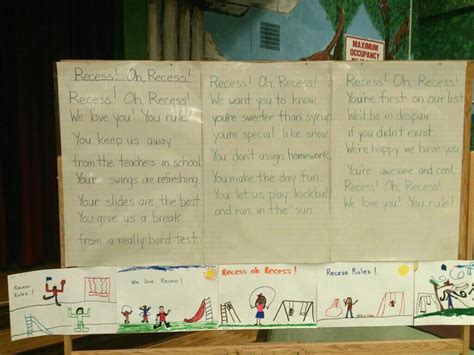 MAXIMUM
OCCUPANCY
Recess! Oh, Recess!
Recess! Oh, Recess!
We love you! You rule!
You keep us away
from the teachers in school.
Your swings are refreshing.
Your slides are the best.
You give us a break
from a really hard test.
Recess! Oh, Recess!
We want you to know,
you're sweeter than syrup
you're special like snow.
You don't assign homework.
You make the day fun.
You let us play kickball
and run in the sun.
Recess! Oh, Recess!
You're first on our list.
We'd be in despair
if you didn't exist.
We're happy we have you.
You're awesome and cool.
Recess! Oh, Recess!
We love you! You rule!
Recess
Rules!
We love Recess!
Recess oh Recess!
Recess Rules!